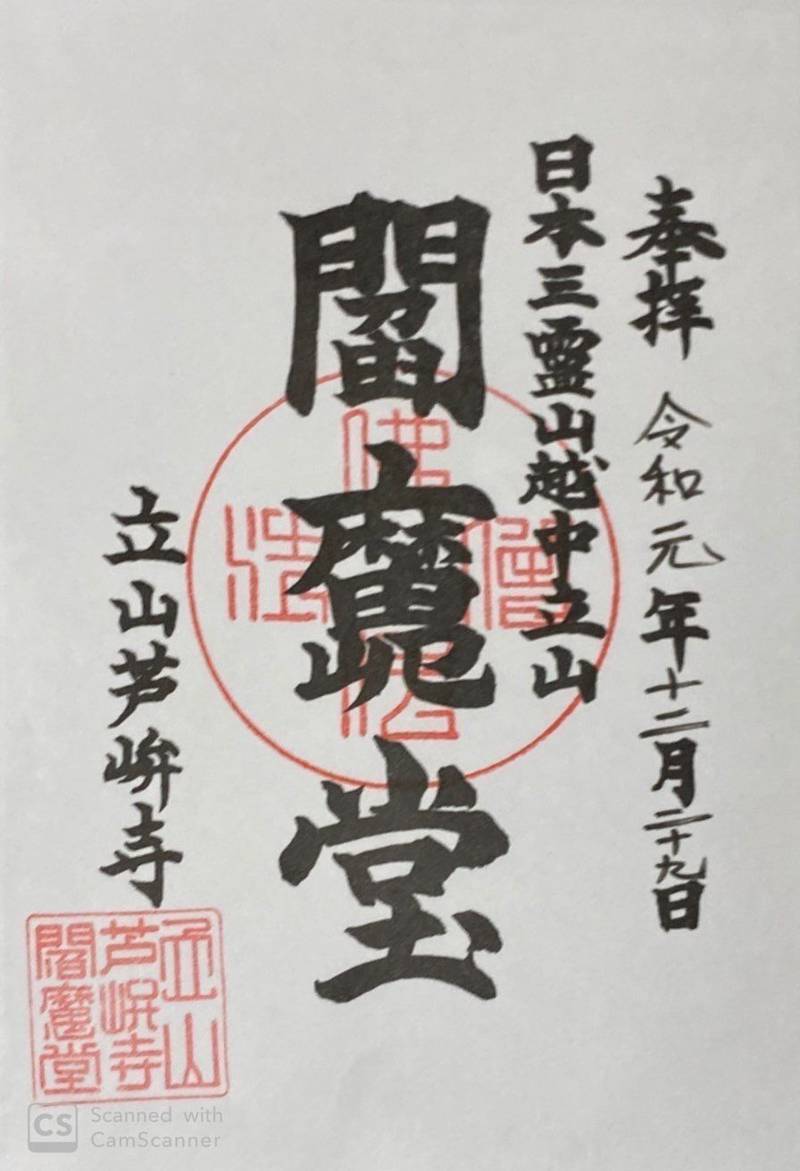 奉拝 令和元年十二月二十九日
日本三霊山越中立山
閻魔堂
佛法僧
立山芦峅寺
立山
芦峅寺
閻魔堂
CS Scanned with
CamScanner